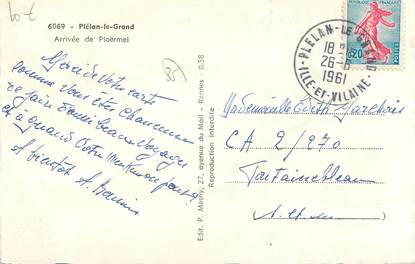 6069 - Plélan-le-Grand
Arrivée de Ploërmel
Merci de votre carte
comme vous êtes chanceuse
de faire d'aussi beaux voyages
et à quand votre
A bientôt A.
Edit. P. Mosny, 27, avenue du Mail - Rennes - 0.58
Reproduction interdite
PLELAN-LE-GRAND
18
26-
1961
ILLE-ET-VILAINE
0,20
POSTES
Mademoiselle Edith Marchois
CA 2/270
Fontainebleau